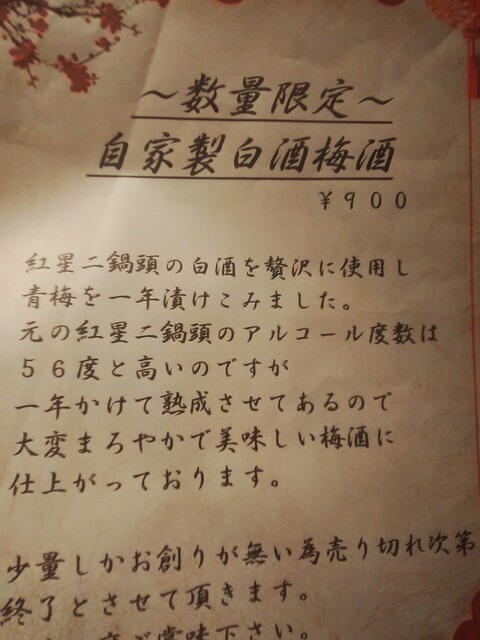 ～数量限定～
自家製白酒梅酒
¥900
紅星二鍋頭の白酒を贅沢に使用し
青梅を一年漬けこみました。
元の紅星二鍋頭のアルコール度数は
56度と高いのですが
一年かけて熟成させてあるので
大変まろやかで美味しい梅酒に
仕上がっております。
少量しかお創りが無い為売り切れ次第
終了とさせて頂きます。
賞味下さい。